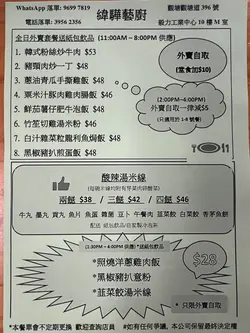 WhatsApp 落單: 9699 7819
電話落單: 3956 2356
緯曄藝廚
觀塘觀塘道 396 號
毅力工業中心 10 樓 M 室
全日外賣套餐送紙包飲品 (11:00AM – 8:00PM 供應)
1. 韓式粉絲炒牛肉 $53
2. 豬頸肉炒一丁 $48
3. 蔥油青瓜手撕雞飯 $48
4. 粟米汁豚肉雞鬆飯 $48
5. 鮮茄薯仔牛泡飯 $48
6. 竹笙切雞湯米粉 $48
7. 白汁雜菜粒龍利魚焗飯 $48
8. 黑椒豬扒煎蛋飯 $48
外賣自取
(堂食加$10)
(2:00PM-4:00PM)
外賣自取一律減$5
(只適用於 1-8 號餐)
酸辣湯米線
兩餸 $38 / 三餸 $42 / 四餸 $46
牛丸 墨丸 貢丸 魚片 魚蛋 雞蓉 豆卜 午餐肉 韮菜餃 白菜餃 香茅魚餅
(1:30PM - 4:00PM 供應) *送紙包飲品
*照燒洋蔥雞扒飯
*黑椒豬扒意粉
*韮菜餃湯米線
$28
* 只限外賣自取
*本餐單會不定期更換 歡迎查詢店員 #如有任何爭議, 本公司保留最終決定權